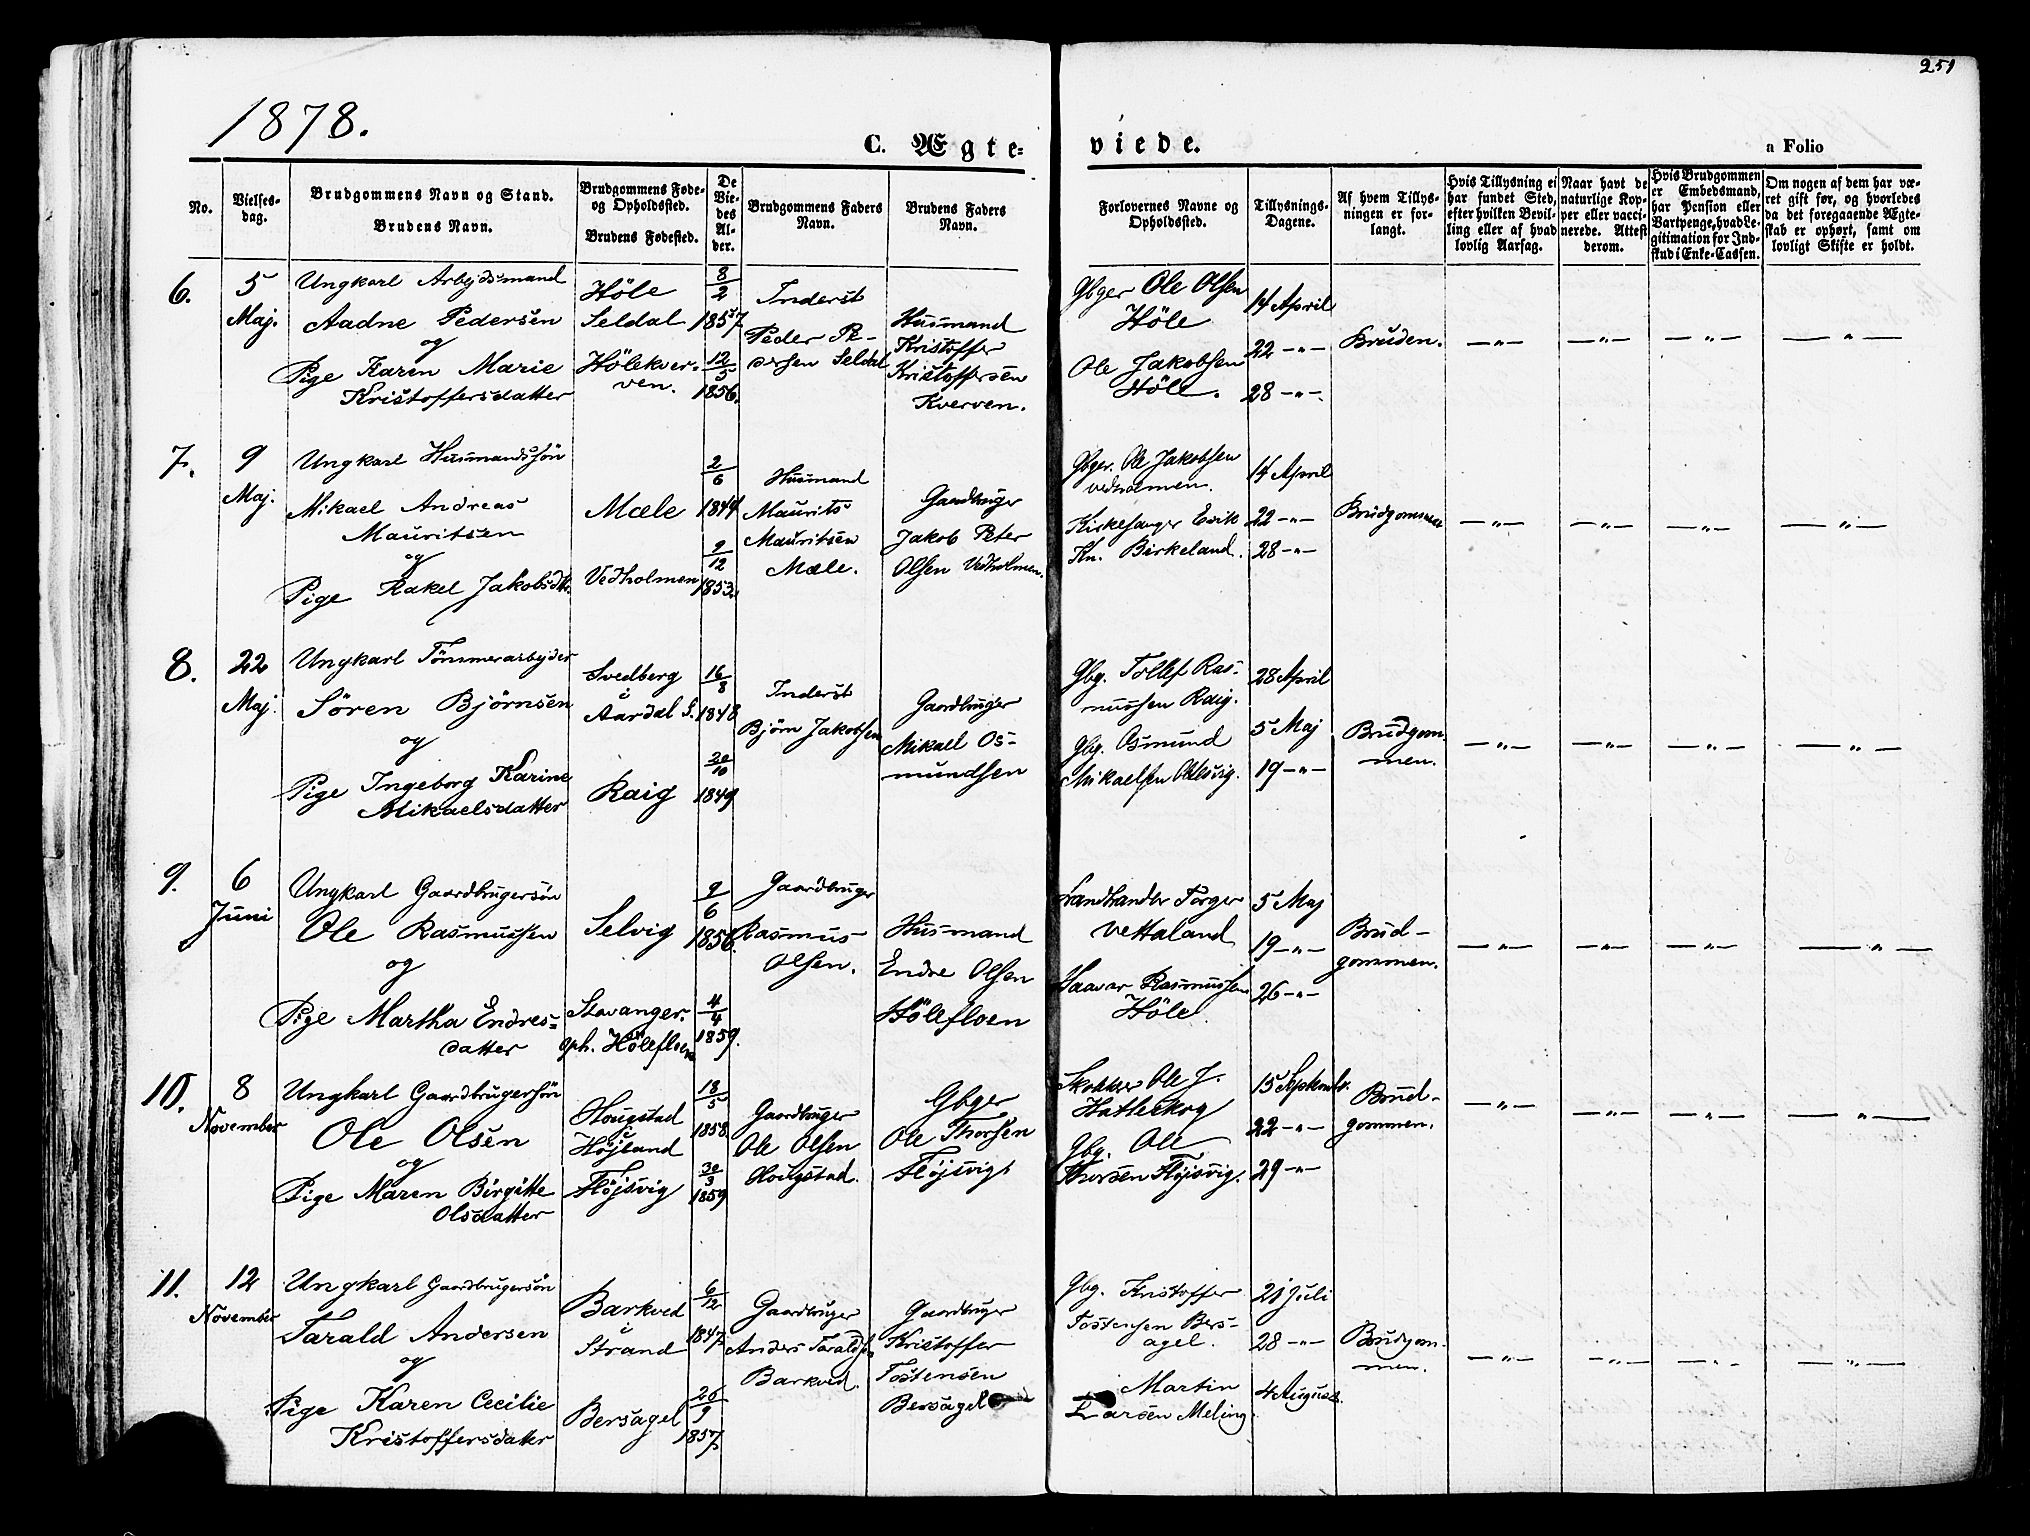 251
1878.
C. Ægte= viede.
a Folio
No.
Vielses=
dag.
Brudgommens Navn og Stand.
Brudens Navn.
Brudgommens Føde=
og Opholdssted.
Brudens Fødested.
De
Vie=
des
Al=
der.
Brudgommens Faders
Navn.
Brudens Faders
Navn.
Forlovernes Navne og
Opholdssted.
Tillysnings=
Dagene.
Af hvem Tillys=
ningen er for=
langt.
Hvis Tillysning ei
har fundet Sted,
efter hvilken Bevil=
ling eller af hvad
lovlig Aarsag.
Naar havt de
naturlige Kop=
per eller vacci=
nerede. Attest
derom.
Hvis Brudgommen
er Embedsmand,
har Pension eller
Vartpenge, hvad Le=
gitimation for Ind=
skud i Enke=Cassen.
Om nogen af dem har væ=
ret gift før, og hvorledes
da det foregaaende Ægte=
skab er ophørt, samt om
lovligt Skifte er holdt.
6.
5
Maj.
Ungkarl Arbejdsmand
Aadne Pedersen
og
Pige Karen Marie
Kristoffersdatter
Höle
Seldal
Hölekver-
ven.
8/2
1857
12/5
1856.
Inderst
Peder Pe-
dersen Seldal
Husmand
Kristoffer
Kristoffersen
Kverven.
Gbger Ole Olsen
Höle
Ole Jakobsen
Höle.
14 April
22 -"-
28 -"-
Bruden.
-"- -"- -"- -"-
7.
9
Maj.
Ungkarl Husmandssön
Mikael Andreas
Mauritsen
og
Pige Rakel Jakobsdtt.
Mæle
Vedholmen
2/6
1844
9/12
1853.
Husmand
Maurits
Mauritsen
Mæle.
Gaardbruger
Jakob Peter
Olsen Vedholmen.
Gbger. Ole Jakobsen
Vedholmen.
Kirkesanger Eerik
Kn. Birkeland.
14 April
22 -"-
28 -"-
Brudgommen
-"- -"- -"- -"-
8.
22
Maj.
Ungkarl Tömmerarbejder
Sören Bjørnsen
og
Pige Ingeborg Karine
Mikaelsdatter
Svedberg
i
Aardal S.
Raig
16/8
1848
30/10
1849
Inderst
Bjørn Jakobsen
Gaardbruger
Mikael Os-
mundsen
Gbg. Tollef Ras-
mussen Raig.
Gbg. Osmund
Mikaelsen
28 April
5 Maj
19 -"-
Brudgom-
men.
-"- -"- -"- -"-
9.
6
Juni
Ungkarl Gaardbrugersøn
Ole Rasmussen
og
Pige Martha Endres-
datter
Selvig
Stavanger.
oph. Hölefloen
9/6
1856.
4/4
1859.
Gaardbruger
Rasmus
Olsen.
Husmand
Endre Olsen
Hölefloen
Landhandler Torger
Vettaland
Haavar Rasmussen
Höle
5 Maj
19 -"-
26 -"-
Brud-
gommen.
-"- -"- -"- -"-
10.
8
November
Ungkarl Gaardbrugersön
Ole Olsen
og
Pige Maren Birgitte
Olsdatter
Hougstad
i
Höjland
Fløjsvig
18/5
1858.
30/3
1859
Gaardbruger
Ole Olsen
Hougstad.
Gbger
Ole Thorsen
Fløjsvig
Ole J.
Hatleskog
Gbg. Ole
Thorsen Fløjsvig.
15 Septemb.
22 -"-
29 -"-
Brud-
gommen.
-"- -"- -"- -"-
11.
12
November
Ungkarl Gaardbrugersøn
Tarald Andersen
og
Pige Karen Cecilie
Kristoffersdatter
Barkved
i
Strand
Bersagel
6/12
1847.
26/9
1857.
Gaardbruger
Anders Taraldsen
Barkved.
Gaardbruger
Kristoffer
Tostensen
Bersagel
Gbg. Kristoffer
Tostensen Bers-
agel.
Martin
Larsen Meling.
21 Juli
28 -"-
4 August.
Brudgom-
men.
-"- -"- -"- -"-